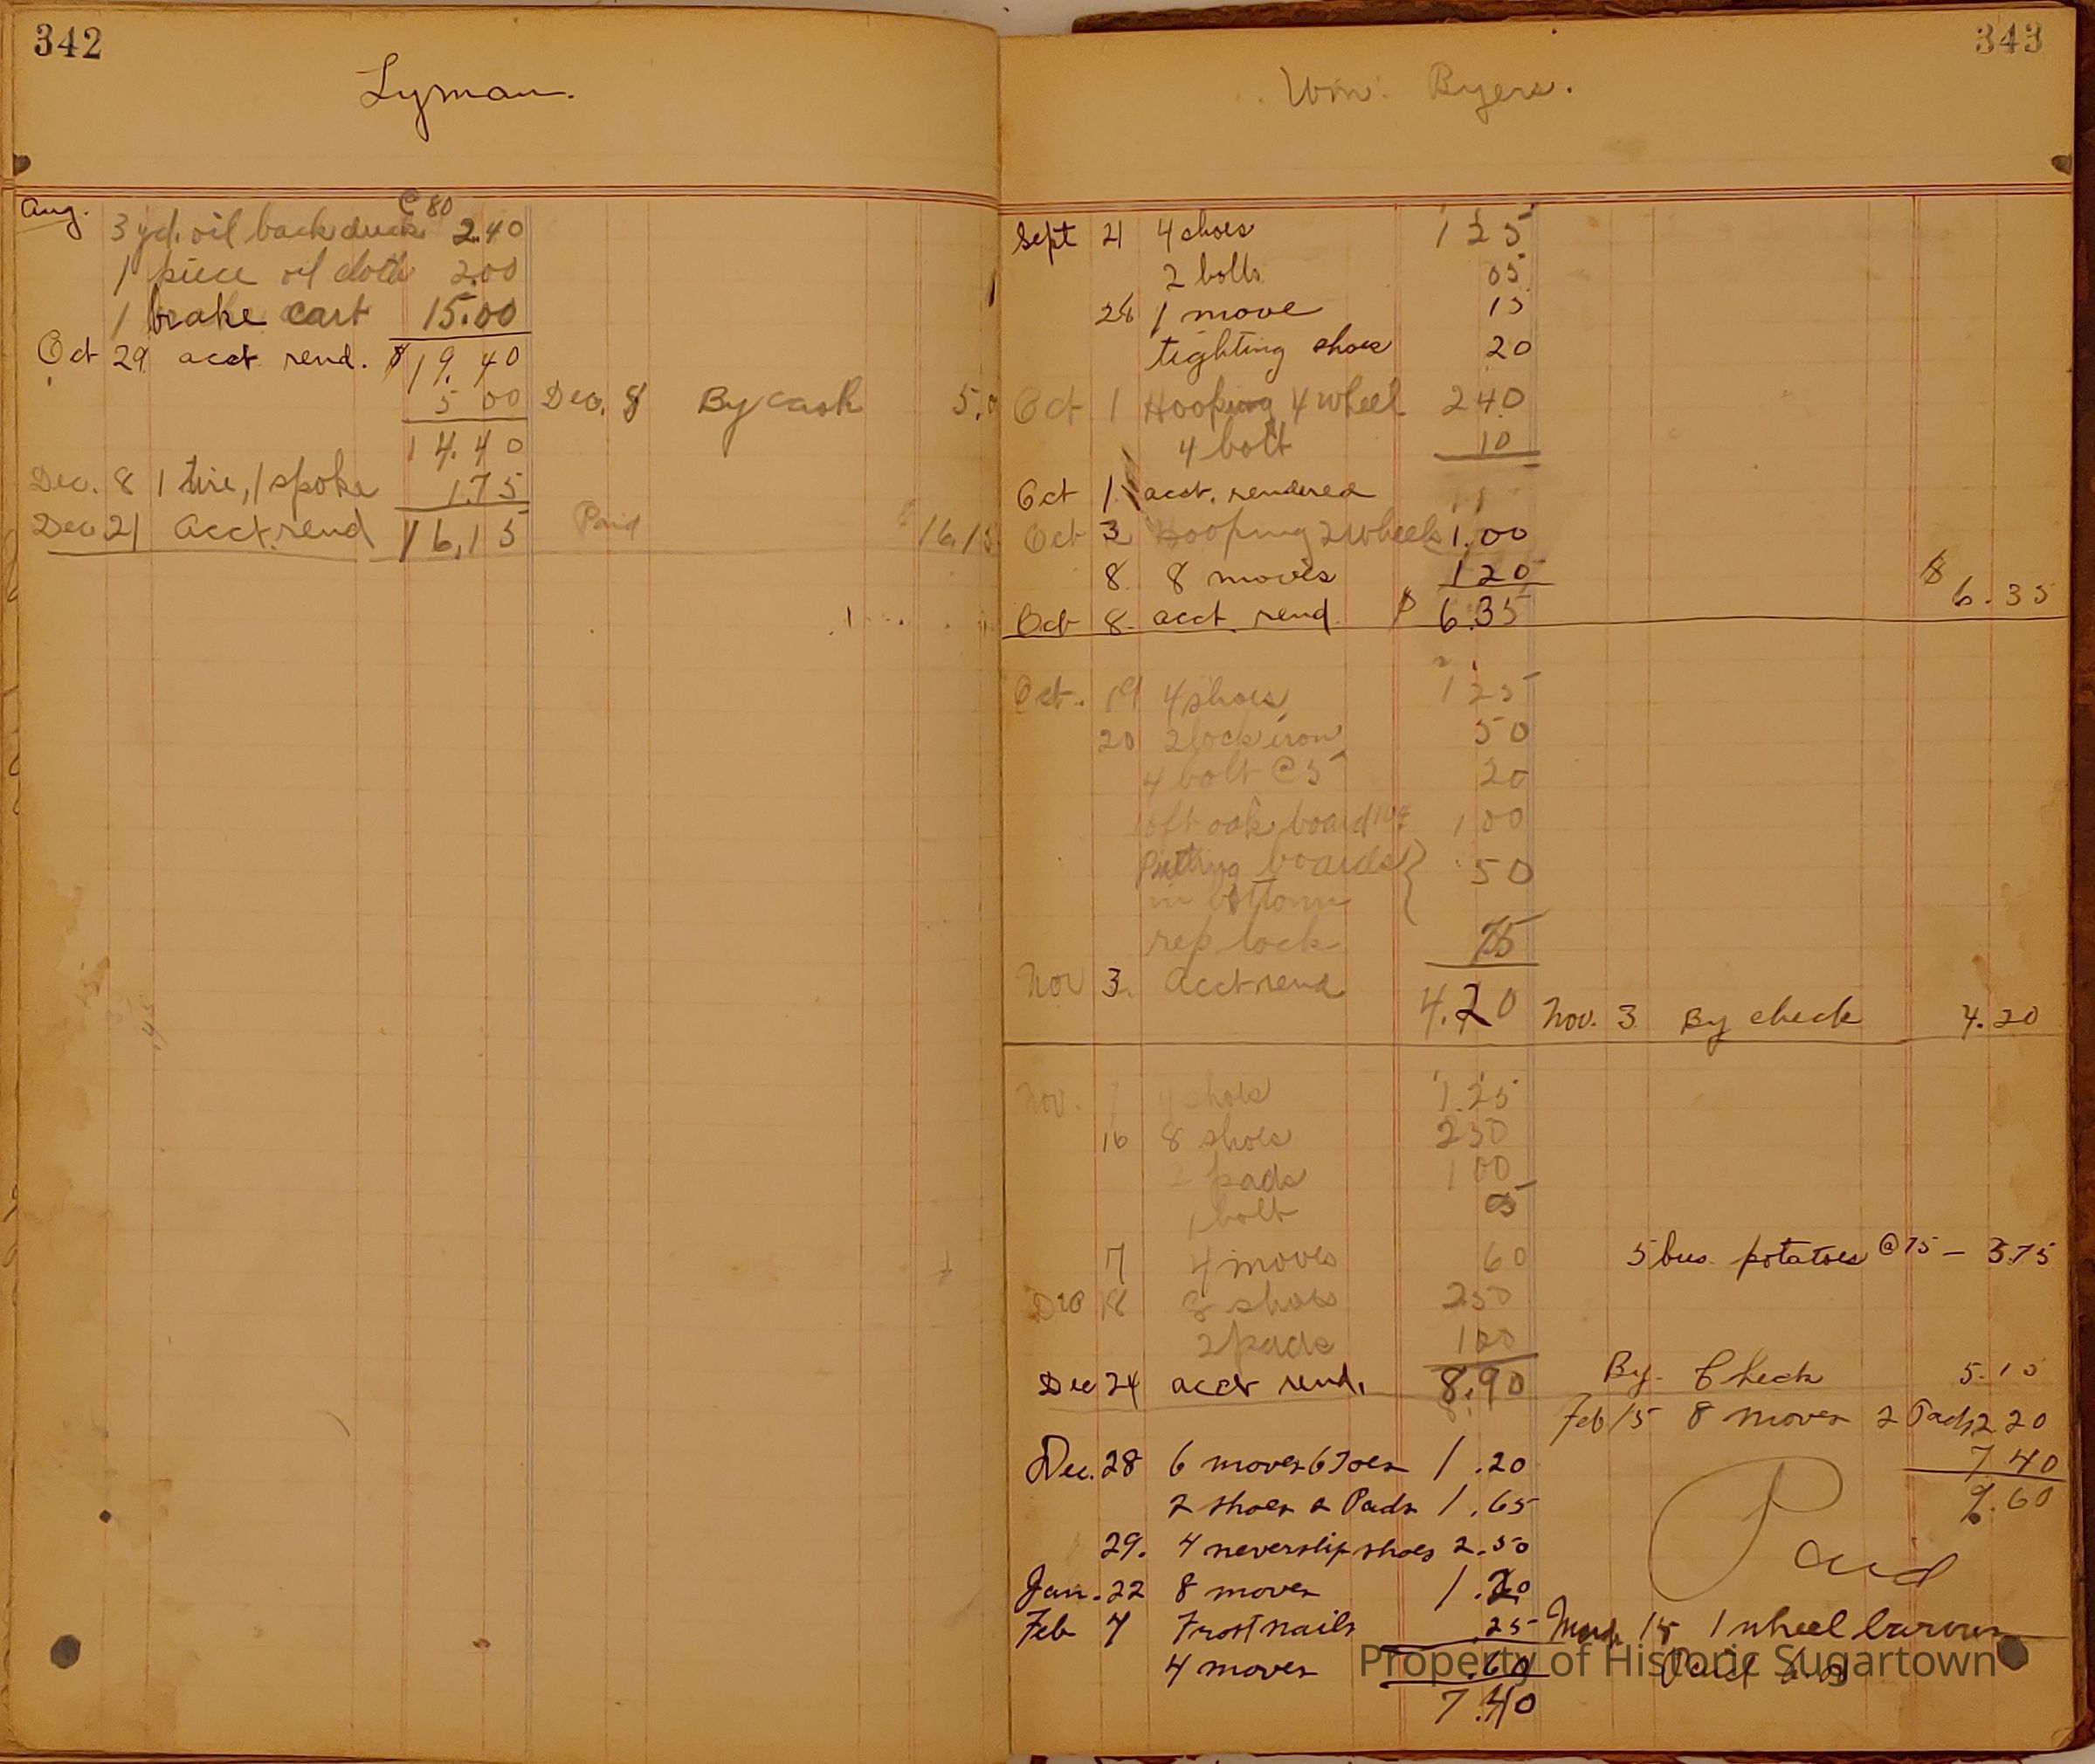 342
Lyman.
Aug. @ 80
3 yd. oil back duck 2.40
1 piece oil cloth 2.00
1 brake cart 15.00
Oct 29 acct rend. $ 19.40
5 00 Dec. 8 By cash 5.0
14.40
Dec. 8 1 tire, 1 spoke 1.75
Dec 21 Acct. rend 16,15 Paid 16.15
343
Wm. Byers.
Sept 21 4 shoes 1 25
2 bolts 05
28 1 move 15
tighting shoes 20
Oct 1 Hooping 4 wheel 240
4 bolt 10
Oct 1 acct. rendered
Oct 3 Hooping 2 wheels 1.00
8 8 moves 120
$ 6.35
Oct 8 acct. rend $ 6.35
Oct. 19 4 shoes 1 25
20 2 lock iron 50
4 bolt @ 5 20
oft oak board 1 00
Putting boards } 50
in bottom
rep lock 75
Nov 3. Acct rend 4.20 Nov. 3 By check 4.20
Nov. 7 4 shoes 1.25
16 8 shoes 250
2 pads 1 00
1 bolt 05
7 4 moves 60 5 bus. potatoes @ 75 — 3.75
Dec 18 8 shoes 250
2 pads 100
Dec 24 acct rend. 8.90 By Check 5.15
Feb 15 8 moves 2 Pads 2 20
Dec. 28 6 moves 6 Toes 1.20 7 40
2 shoes 2 Pads 1.65 9.60
29. 4 neverslip shoes 2.50 Paid
Jan. 22 8 moves 1.20
Feb 7 Frost nails .25 March 15 1 wheel barrow
4 moves .60 Paid
7.40
Property of Historic Sugartown